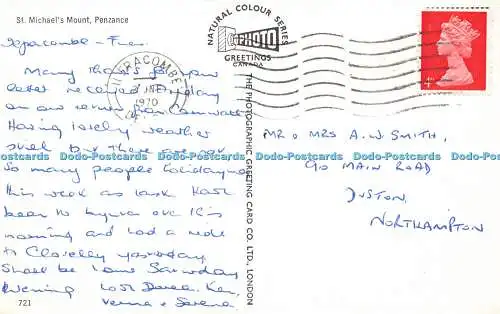 St. Michael's Mount, Penzance
Ilfracombe - Tues.
Many thanks for your
letter received Friday
on our return from Cornwall
Having lovely weather
still but there are not
so many people holidaying
this week as last. Have
been to this
morning and had a ride
to Clovelly yesterday
Shall be home Saturday
Evening Love Derek, Ken,
Verna & Serena
721
ILFRACOMBE
1970
NATURAL COLOUR SERIES
PHOTO
GREETINGS
CANADA
THE PHOTOGRAPHIC GREETING CARD CO. LTD., LONDON
MR & MRS A.W SMITH,
90 MAIN ROAD
DUSTON,
NORTHAMPTON
Dodo-Postcards Dodo-Postcards Dodo-Postcards Dodo-Postcards Dodo-Postcards